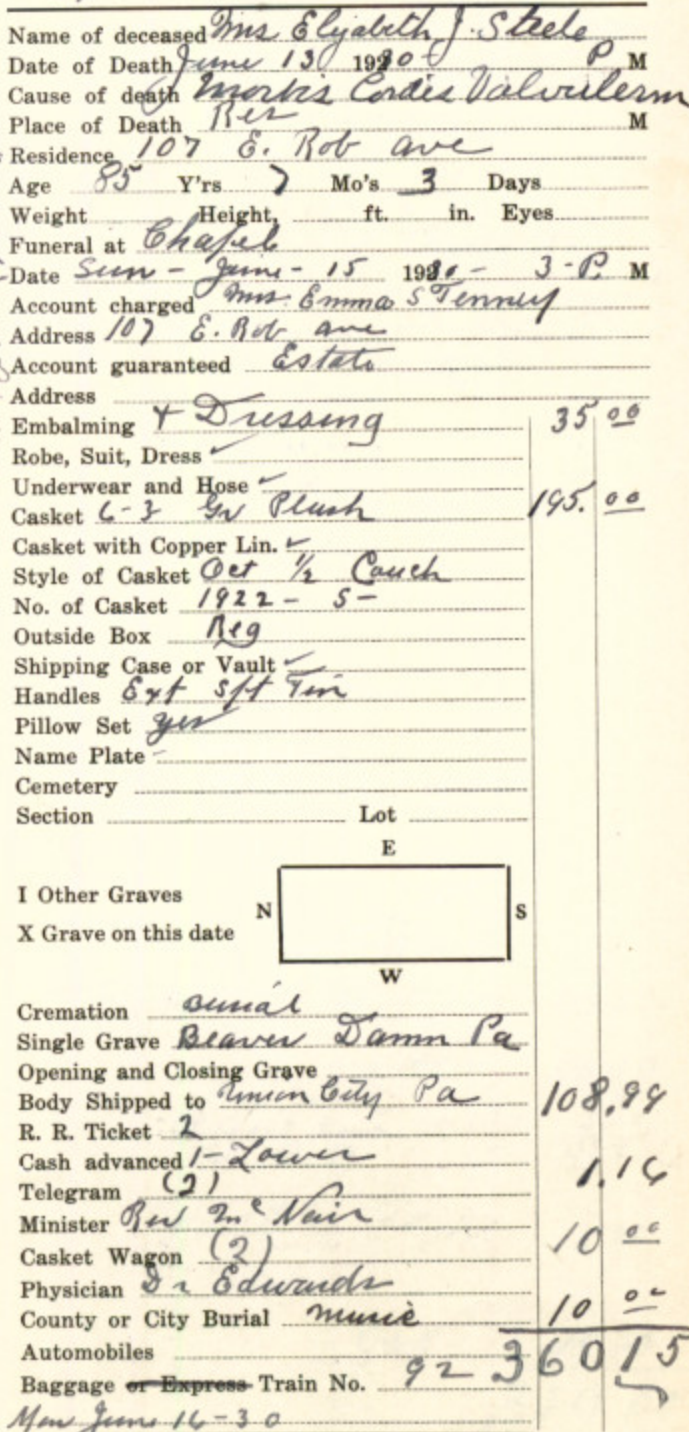 Name of deceased Mrs Elizabeth J. Steele
Date of Death June 13 1930 P M
Cause of death Morbis Cordis Valvulerm
Place of Death Res M
Residence 107 E. Rob ave
Age 85 Y'rs 7 Mo's 3 Days
Weight Height, ft. in. Eyes
Funeral at Chapel
Date Sun - June - 15 1930 - 3 - P. M
Account charged Mrs. Emma S Tenney
Address 107 E. Rob ave
Account guaranteed Estate
Address
Embalming + Dressing 35 00
Robe, Suit, Dress ✓
Underwear and Hose ✓
Casket 6-3 Gr Plush 195. 00
Casket with Copper Lin. ✓
Style of Casket Oct 1/2 Couch
No. of Casket 1922 - S -
Outside Box Reg
Shipping Case or Vault ✓
Handles Ext Tin
Pillow Set yes
Name Plate -
Cemetery
Section Lot
E
I Other Graves
N S
X Grave on this date
W
Cremation Burial
Single Grave Beaver Damm Pa
Opening and Closing Grave
Body Shipped to Union City Pa 108.99
R. R. Ticket 2
Cash advanced 1 - Lower
Telegram (2) 1.16
Minister Rev McNair
Casket Wagon (2) 10 00
Physician Dr Edwards
County or City Burial music 10 00
Automobiles 360 15
Baggage or Express Train No. 92
Mon June 16-30